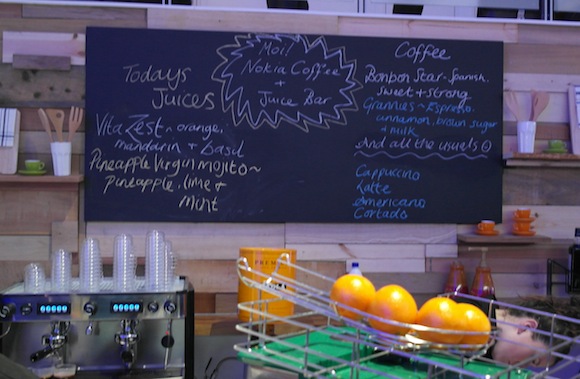 Todays
Juices
Vita Zest ~ orange,
mandarin + basil
Pineapple Virgin mojito ~
pineapple, lime +
Mint
Moi!
Nokia Coffee
+
Juice Bar
Coffee
Bonbon Star - Spanish.
sweet + strong
Grannies - Espresso,
cinnamon, brown sugar
+ milk
And all the usuals
Cappuccino
Latte
Americano
Cortado